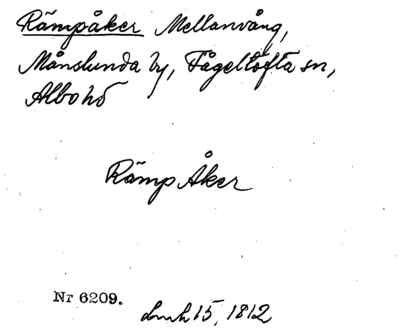 Rämpåker Mellanvång,
Månslunda by, Fågeltofta sn,
Albo hd
Rämp Åker
Nr 6209.
15, 1812